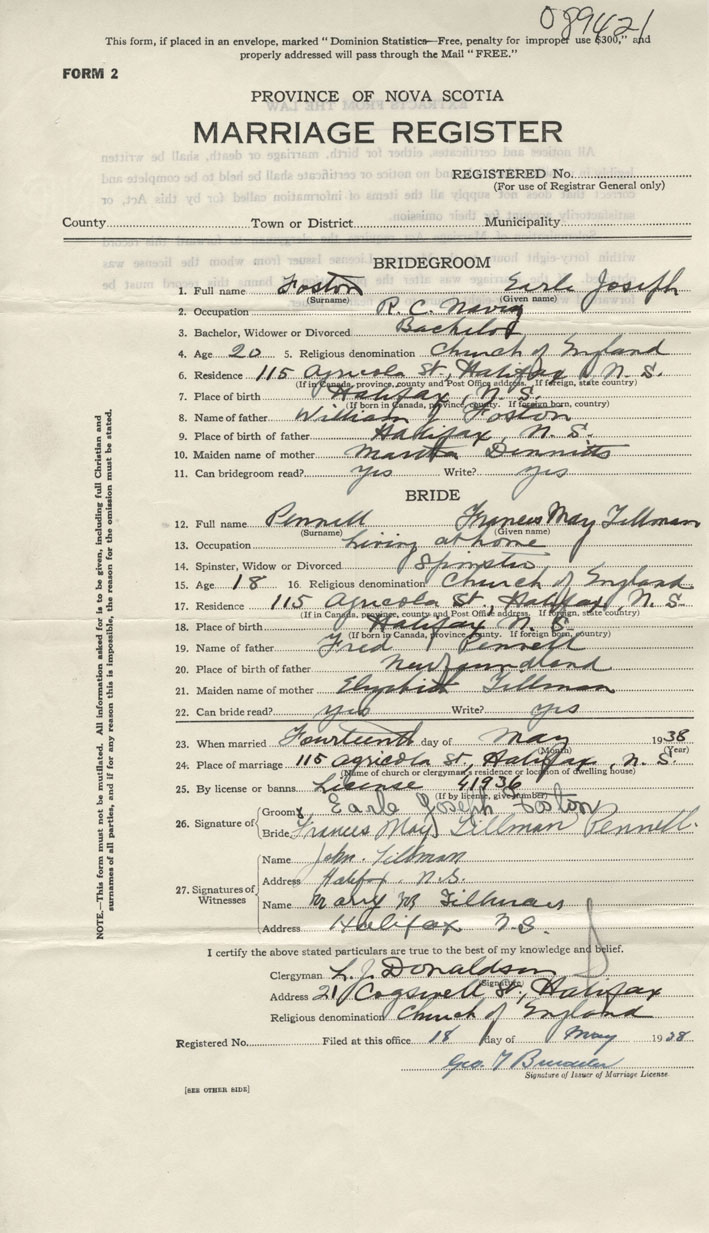 089421
This form, if placed in an envelope, marked "Dominion Statistics—Free, penalty for improper use $300," and
properly addressed will pass through the Mail "FREE."
FORM 2
PROVINCE OF NOVA SCOTIA
MARRIAGE REGISTER
REGISTERED No.
(For use of Registrar General only)
County Town or District Municipality
BRIDEGROOM
1. Full name Foston Earle Joseph
(Surname) (Given name)
2. Occupation R. C. Navy
3. Bachelor, Widower or Divorced Bachelor
4. Age 20 5. Religious denomination Church of England
6. Residence 115 Agricola St, Halifax, N. S.
(If in Canada, province, county and Post Office address. If foreign, state country)
7. Place of birth Halifax, N. S.
(If born in Canada, province, county. If foreign born, country)
8. Name of father William J. Foston
9. Place of birth of father Halifax, N. S.
10. Maiden name of mother Martha
11. Can bridegroom read? yes Write? yes
BRIDE
12. Full name Pennell Frances May Tillman
(Surname) (Given name)
13. Occupation Living at home
14. Spinster, Widow or Divorced Spinster
15. Age 18 16. Religious denomination Church of England
17. Residence 115 Agricola St., Halifax, N. S.
(If in Canada, province, county and Post Office address. If foreign, state country)
18. Place of birth Halifax N. S.
(If born in Canada, province, county. If foreign born, country)
19. Name of father Fred Pennell
20. Place of birth of father Newfoundland
21. Maiden name of mother Elizabeth Tillman
22. Can bride read? yes Write? yes
23. When married Fourteenth day of May 1938
(Month) (Year)
24. Place of marriage 115 Agricola St, Halifax, N. S.
(Name of church or clergyman's residence or location of dwelling house)
25. By license or banns License 41936
(If by license, give number)
26. Signature of
Groom Earle Joseph Foston
Bride Frances May Tillman Pennell.
27. Signatures of Witnesses
Name John Tillman
Address Halifax N.S.
Name Mary M Tillman
Address Halifax N.S.
I certify the above stated particulars are true to the best of my knowledge and belief.
Clergyman L. J. Donaldson
(Signature)
Address 21 Cogswell St., Halifax
Religious denomination Church of England
Registered No. Filed at this office 18 day of May 1938
Geo. T
Signature of Issuer of Marriage License.
[SEE OTHER SIDE]
NOTE.—This form must not be mutilated. All information asked for is to be given, including full Christian and
surnames of all parties, and if for any reason this is impossible, the reason for the omission must be stated.